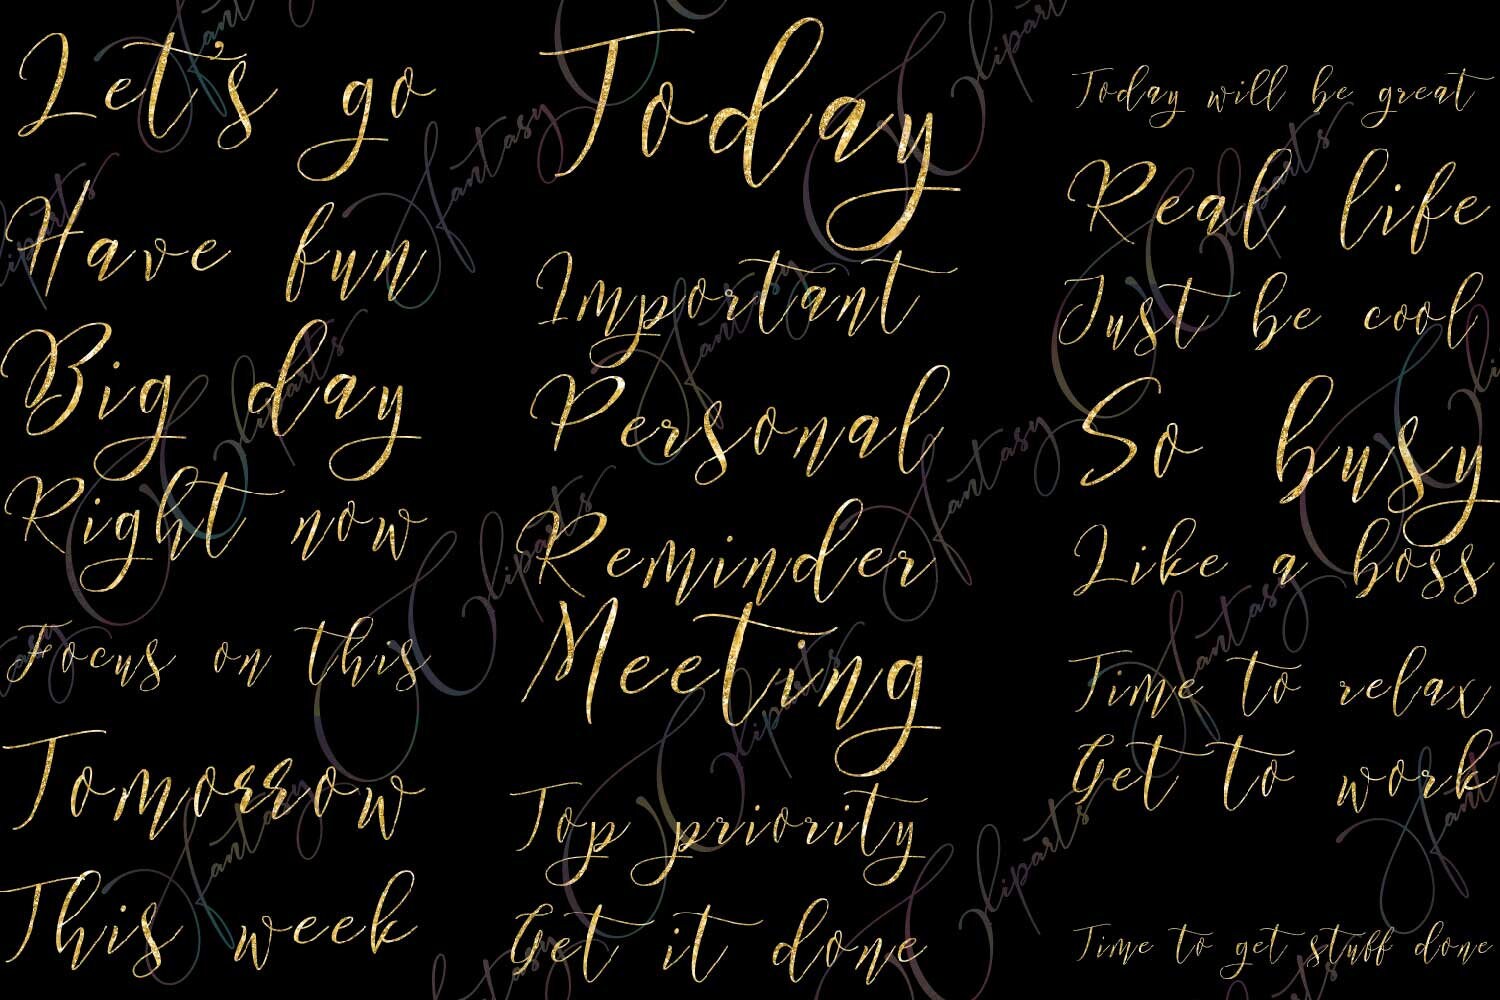 Let's go
Have fun
Big day
Right now
Focus on this
Tomorrow
This week
Today
Important
Personal
Reminder
Meeting
Top priority
Get it done
Today will be great
Real life
Just be cool
So busy
Like a boss
Time to relax
Get to work
Time to get stuff done
Fantasy Cliparts